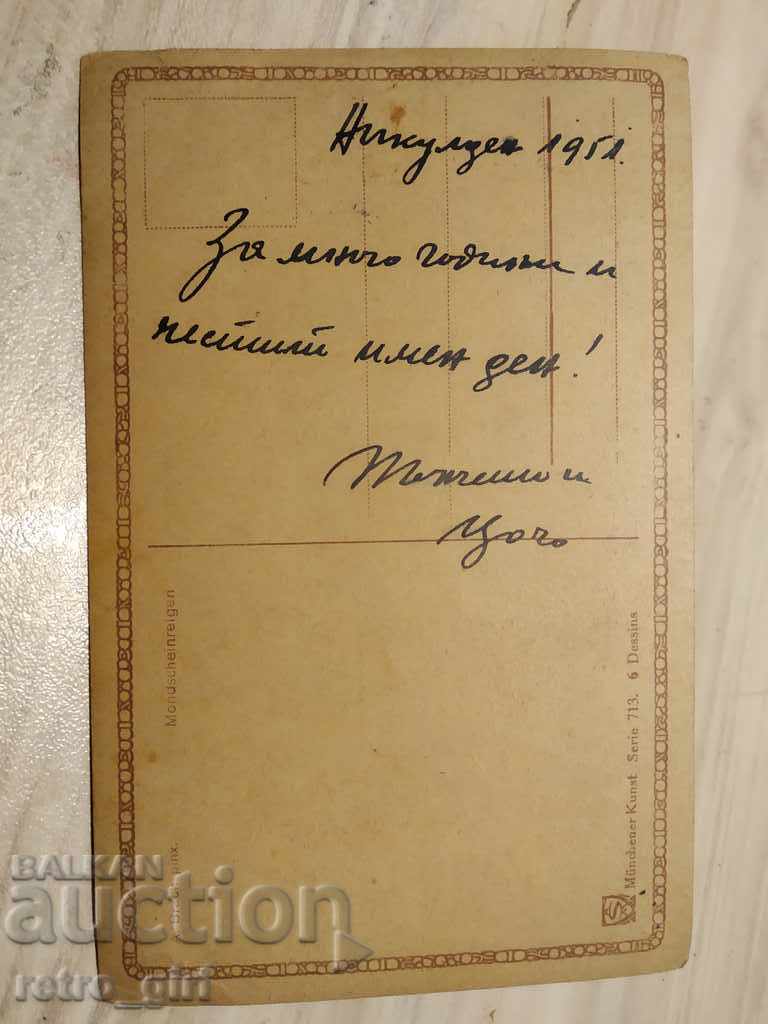 Никулден 1951.
За много години и
честит имен ден!
и
Цочо
Mondscheinreigen
pinx.
Münchener Kunst Serie 713. 6 Dessins
BALKAN
auction
retro_girl